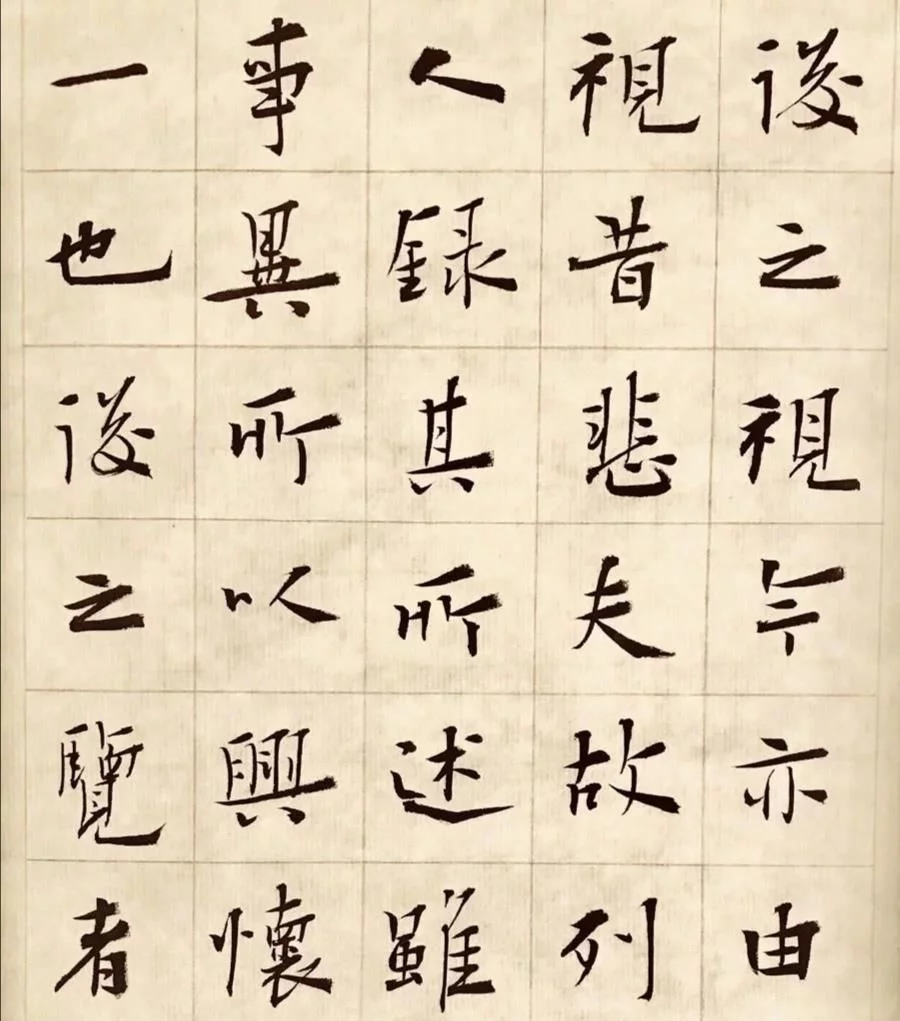 後之視今亦由
視昔悲夫故列
人錄其所述雖
事異所以興懷
一也後之覽者